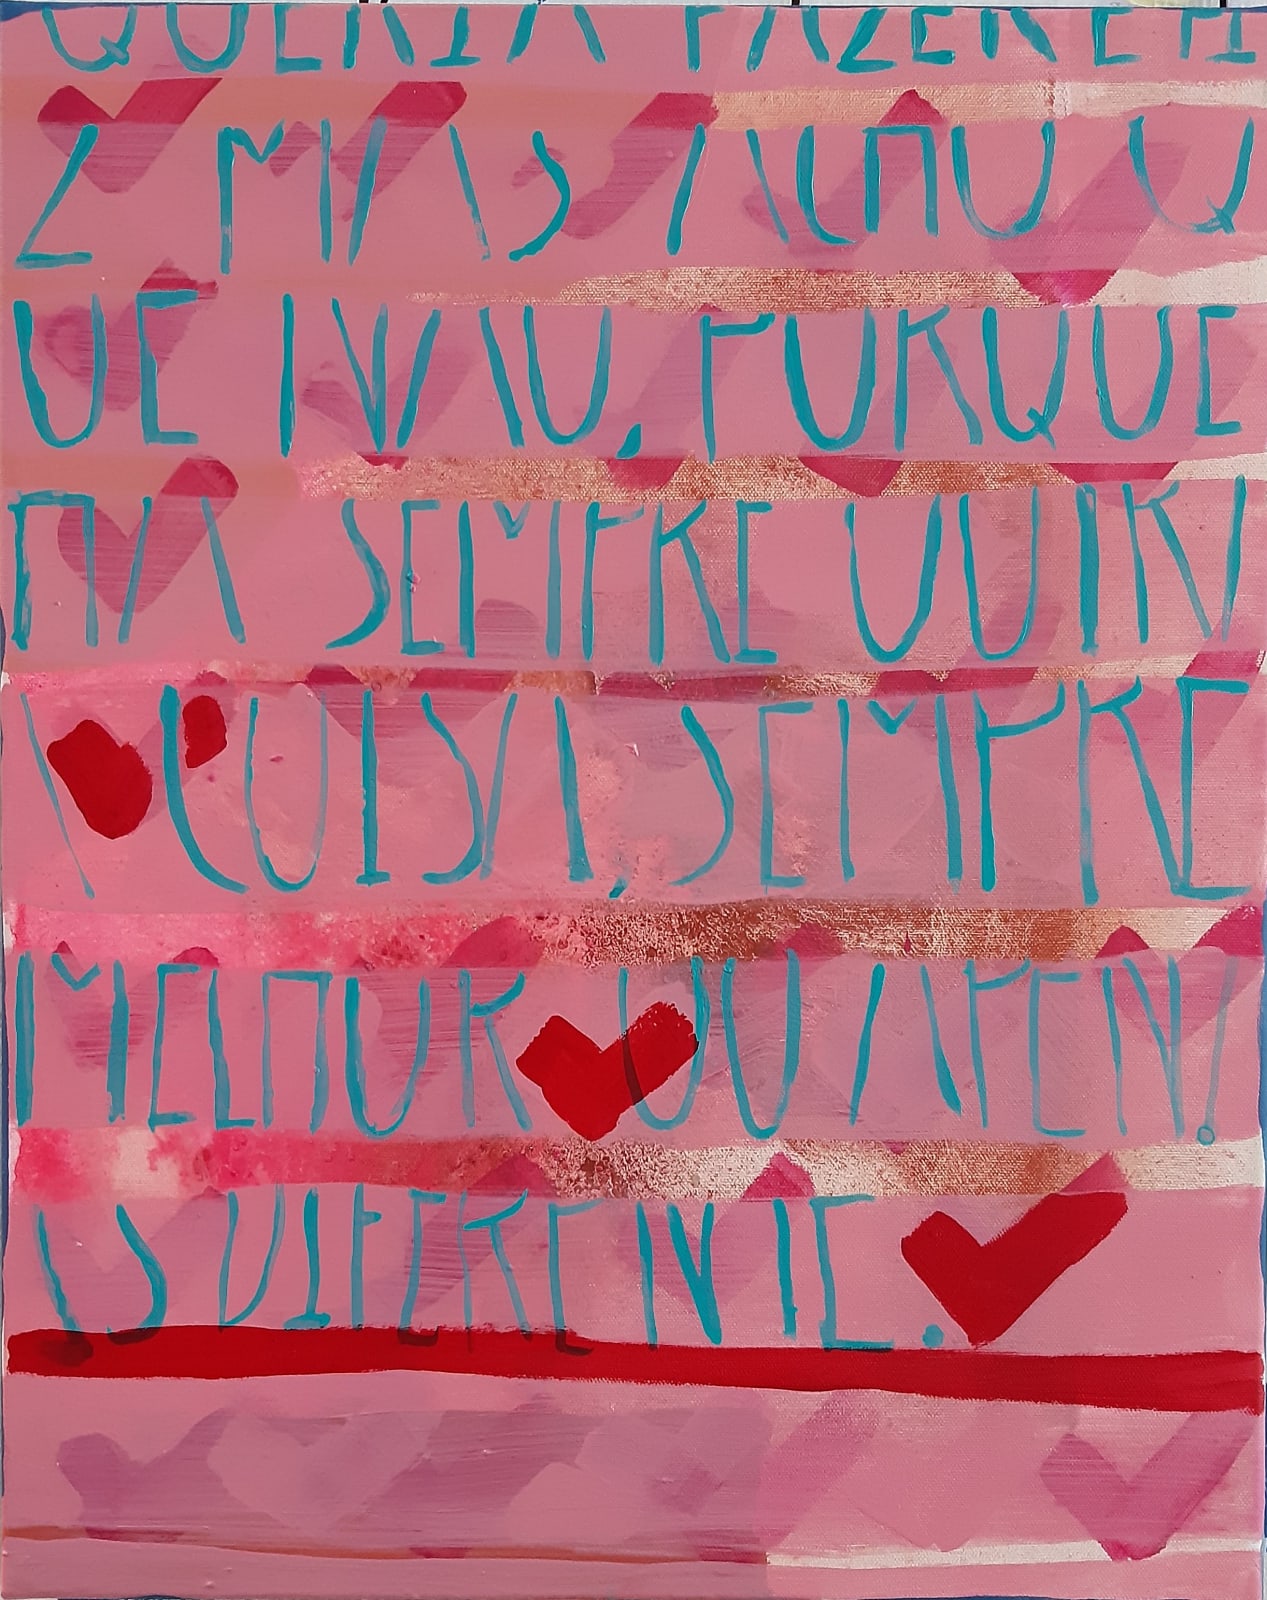 QUERIA FAZER E FI
Z MAS ACHO Q
UE NAO, PORQUE
HA SEMPRE OUTRA
COISA, SEMPRE
MELHOR OU APENA
S DIFERENTE.